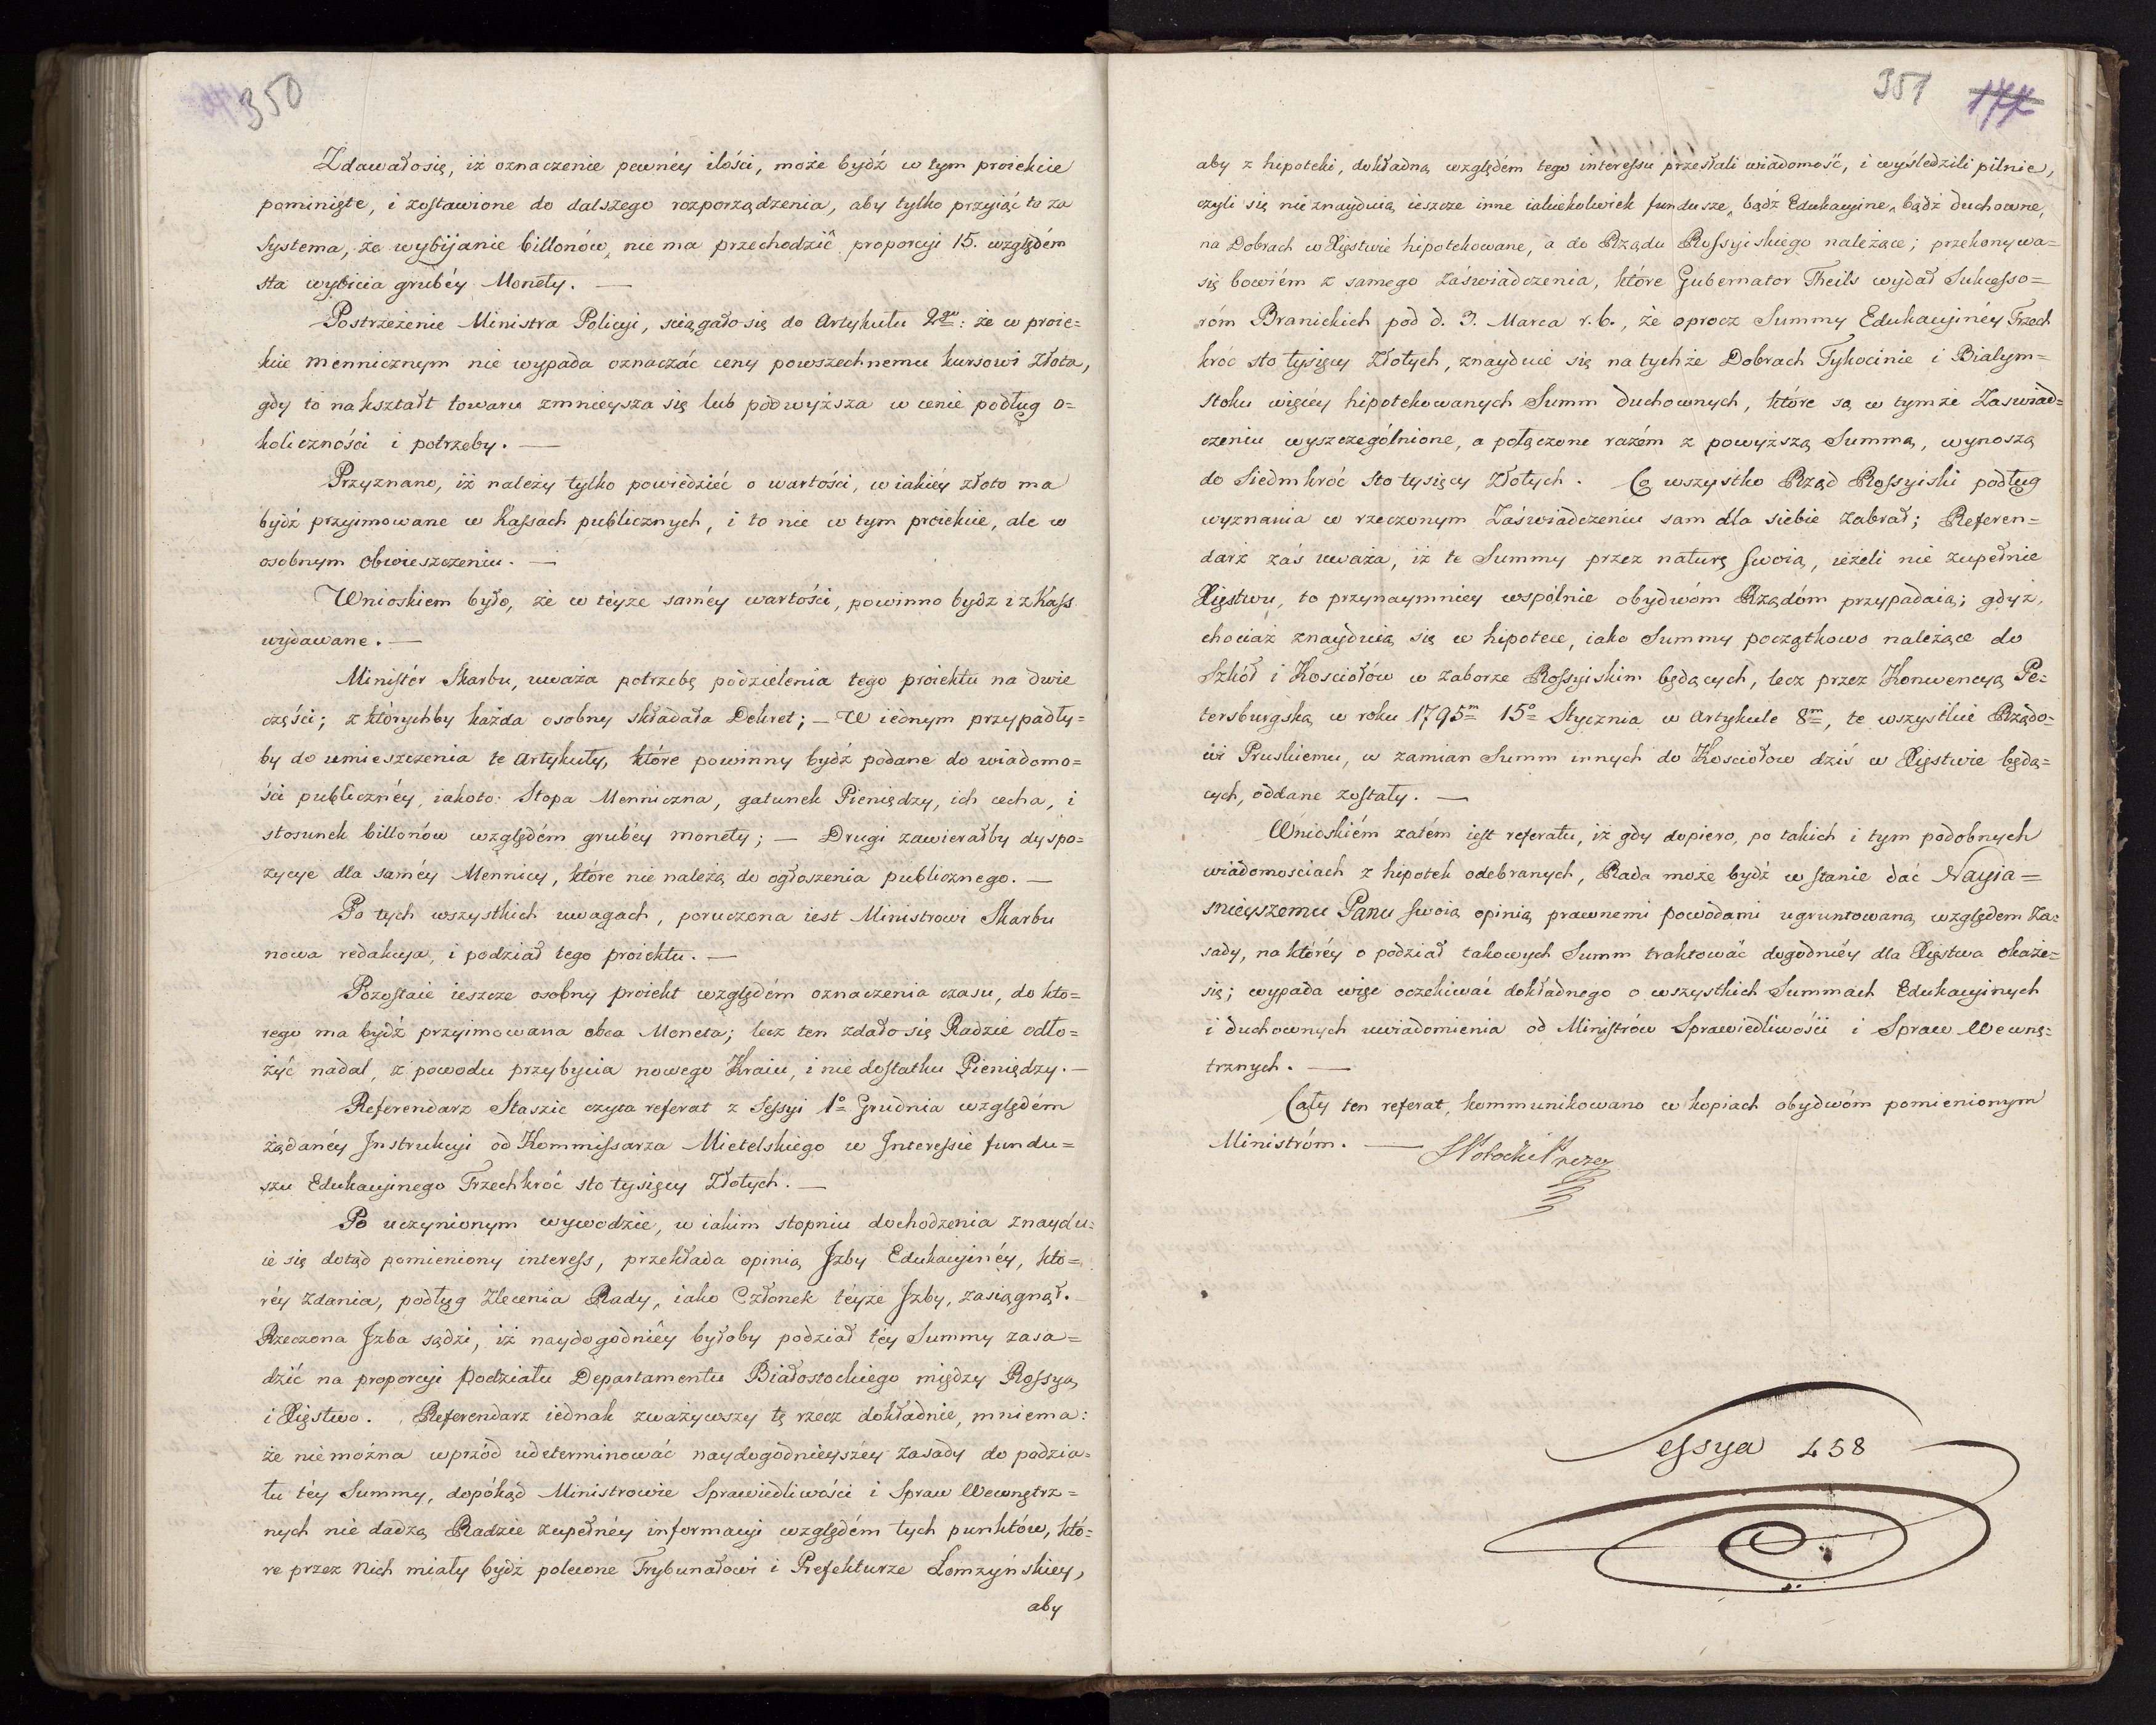 350
Zdawało się, iż oznaczenie pewnéy ilości, może bydź w tym proiekcie
pominięte, i zostawione do dalszego rozporządzenia, aby tylko przyiąć to za
Systema, że wybijanie billonów, nie ma przechodzić proporcyi 15. względém
sta wybicia grubéy Monéty. —
Postrzeżenie Ministra Policyi, sciągało się do Artykułu 2go: że w proie=
kcie mennicznym nie wypada oznaczać ceny powszechnemu kursowi złota,
gdy to nakształt towaru zmnieysza się lub podwyższa w cenie podług o=
koliczności i potrzeby. —
Przyznano, iż należy tylko powiedzieć o wartości, w iakiéy złoto ma
bydź przyimowane w Kassach publicznych, i to nie w tym proiekcie, ale w
osobnym obwieszczeniu. —
Wnioskiem było, że w téyże saméy wartości, powinno bydz i z Kass
wydawane. —
Ministér Skarbu, uważa potrzebę podzielenia tego proiektu na dwie
części; z którychby każda osobny składała Dekret; — W iednym przypadły=
by do umieszczenia te Artykuły, które powinny bydź podane do wiadomo=
ści publicznéy, iakoto: Stopa Menniczna, gatunek Pieniędzy, ich cecha, i
stosunek billonów względém grubéy monéty; — Drugi zawierałby dyspo=
zycye dla saméy Mennicy, które nie należą do ogłoszenia publicznego. —
Po tych wszystkich uwagach, poruczona iest Ministrowi Skarbu
nowa redakcya, i podział tego proiektu. —
Pozostaie ieszcze osobny proiekt względém oznaczenia czasu, do któ=
rego ma bydź przyimowana obca Moneta; lecz ten zdało się Radzie odło=
żyć nadal, z powodu przybycia nowego Kraiu, i niedostatku Pieniędzy. —
Referendarz Staszic czyta referat z Sessyi 1o Grudnia względém
żądanéy Instrukcyi od Kommissarza Mietelskiego w Interessie fundu=
szu Edukacyinego Trzechkróć sto tysięcy Złotych. —
Po uczynionym wywodzie, w iakim stopniu dochodzenia znaydu=
ie się dotąd pomieniony interess, przekłada opinią Jzby Edukacyinéy, któ=
réy zdania, podług zlecenia Rady, iako Członek téyże Jzby, zasiągnął. —
Rzeczona Jzba sądzi, iż naydogodniéy byłoby podział téy Summy zasa=
dzić na proporcyi podziału Departamentu Białostockiego między Rossyą
i Xięstwo. Referendarz iednak zważywszy tę rzecz dokładnie, mniema:
że niemożna wprzód udeterminować naydogodnieyszéy zasady do podzia=
łu téy Summy, dopókąd Ministrowie Sprawiedliwości i Spraw Wewnętrz=
nych nie dadzą Radzie zupełnéy informacyi względém tych punktów, któ=
re przez Nich miały bydź polecone Trybunałowi i Prefekturze Łomżyńskiey,
aby
351 177
aby z hipoteki, dokładną względém tego interessu przesłali wiadomość, i wyśledzili pilnie,
czyli się nieznayduią ieszcze inne iakiekolwiek fundusze, bądź Edukacyine, bądź duchowne,
na Dobrach w Xięstwie hipotekowane, a do Rządu Rossyiskiego należące; przekonywa=
się bowiém z samego zaświadczenia, które Gubernator Theils wydał Sukcesso=
róm Branickich pod d. 3. Marca r. b., że oprocz Summy Edukacyinéy Trzech
króć sto tysięcy Złotych, znayduie się na tychże Dobrach Tykocinie i Białym=
stoku więcéy hipotekowanych Summ duchownych, które są w tymże Zaswiad=
czeniu wyszczególnione, a połączone razém z powyższą Summą, wynoszą
do Siedmkróć sto tysięcy Złotych. Co wszystko Rząd Rossyiski podług
wyznania w rzeczonym Zaświadczeniu sam dla siebie zabrał; Referen=
darz zaś uważa, iż te Summy przez naturę swoią, ieżeli nie zupełnie
Xięstwu, to przynaymniey wspólnie obydwóm Rządóm przypadaią; gdyż,
chociaż znayduią się w hipotece, iako Summy początkowo należące do
Szkół i Kościołów w zaborze Rossyiskim będących, lecz przez Konwencyą Pe=
tersburgską w roku 1795m 15o Stycznia w Artykule 8m, te wszystkie Rządo=
wi Pruskiemu, w zamian Summ innych do Kosciołow dziś w Xięstwie będą=
cych, oddane zostały. —
Wnioskiém zatém iest referatu, iż gdy dopiero, po takich i tym podobnych
wiadomosciach z hipotek odebranych, Rada może bydź w stanie dać Nayia=
śnieyszemu Panu swoią opinią prawnemi powodami ugruntowaną względem za=
sady, na któréy o podział takowych Summ traktować dogodniéy dla Xięstwa okaże=
się; wypada więc oczekiwać dokładnego o wszystkich Summach Edukacyinych
i duchownych uwiadomienia od Ministrów Sprawiedliwości i Spraw Wewnę=
trznych. —
Cały ten referat, kommunikowano w kopiach obydwóm pomienionym
Ministróm. — SPotocki Prezes
Sessya 458